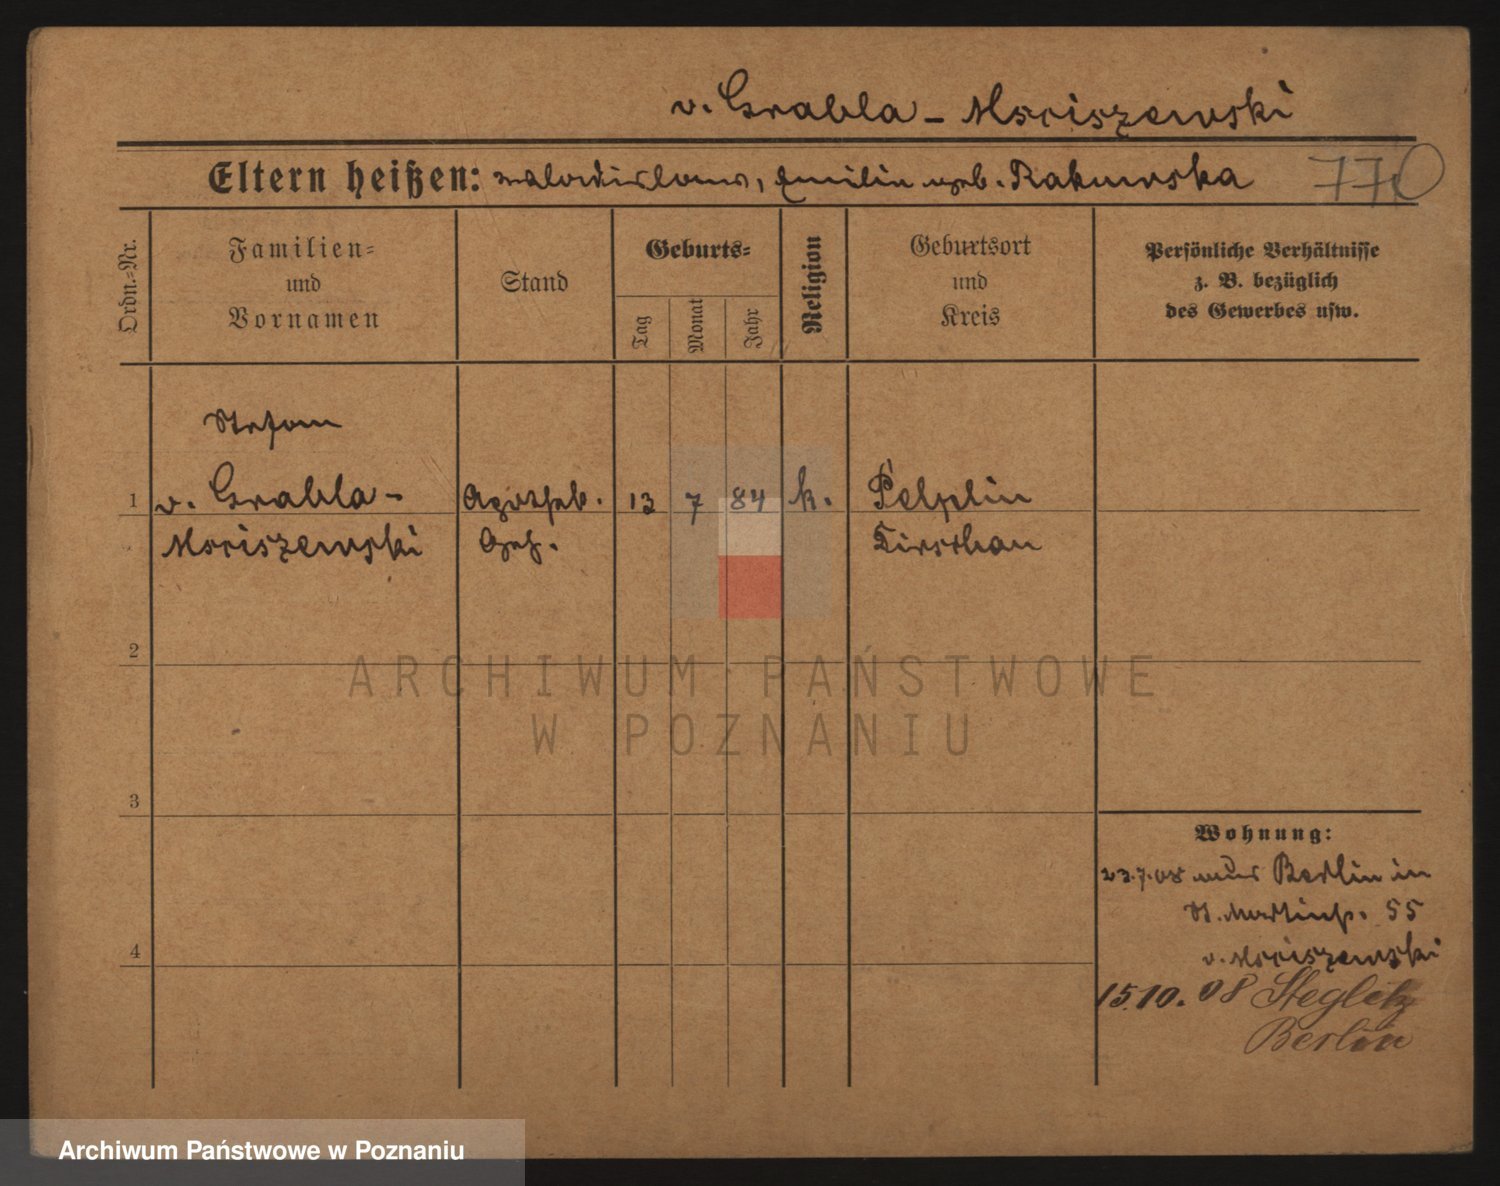 v. Grabla - Msciszewski
Eltern heißen: Wladislaus, Emilie geb. Rakowska 770
Ordn.=Nr.
Familien=
und
Vornamen
Stand
Geburts=
Tag
Monat
Jahr
Religion
Geburtsort
und
Kreis
Persönliche Verhältnisse
z. B. bezüglich
des Gewerbes usw.
Stefan
1 v. Grabla - Apothek. 13 7 84 k. Pelplin
Msciszewski Geh. Dirschau
2
ARCHIWUM PAŃSTWOWE
W POZNANIU
3
Wohnung:
23.7.08 aus Berlin in
St. Martinstr. 55
4
v. Msciszewski
15.10.08 Steglitz
Berlin
Archiwum Państwowe w Poznaniu